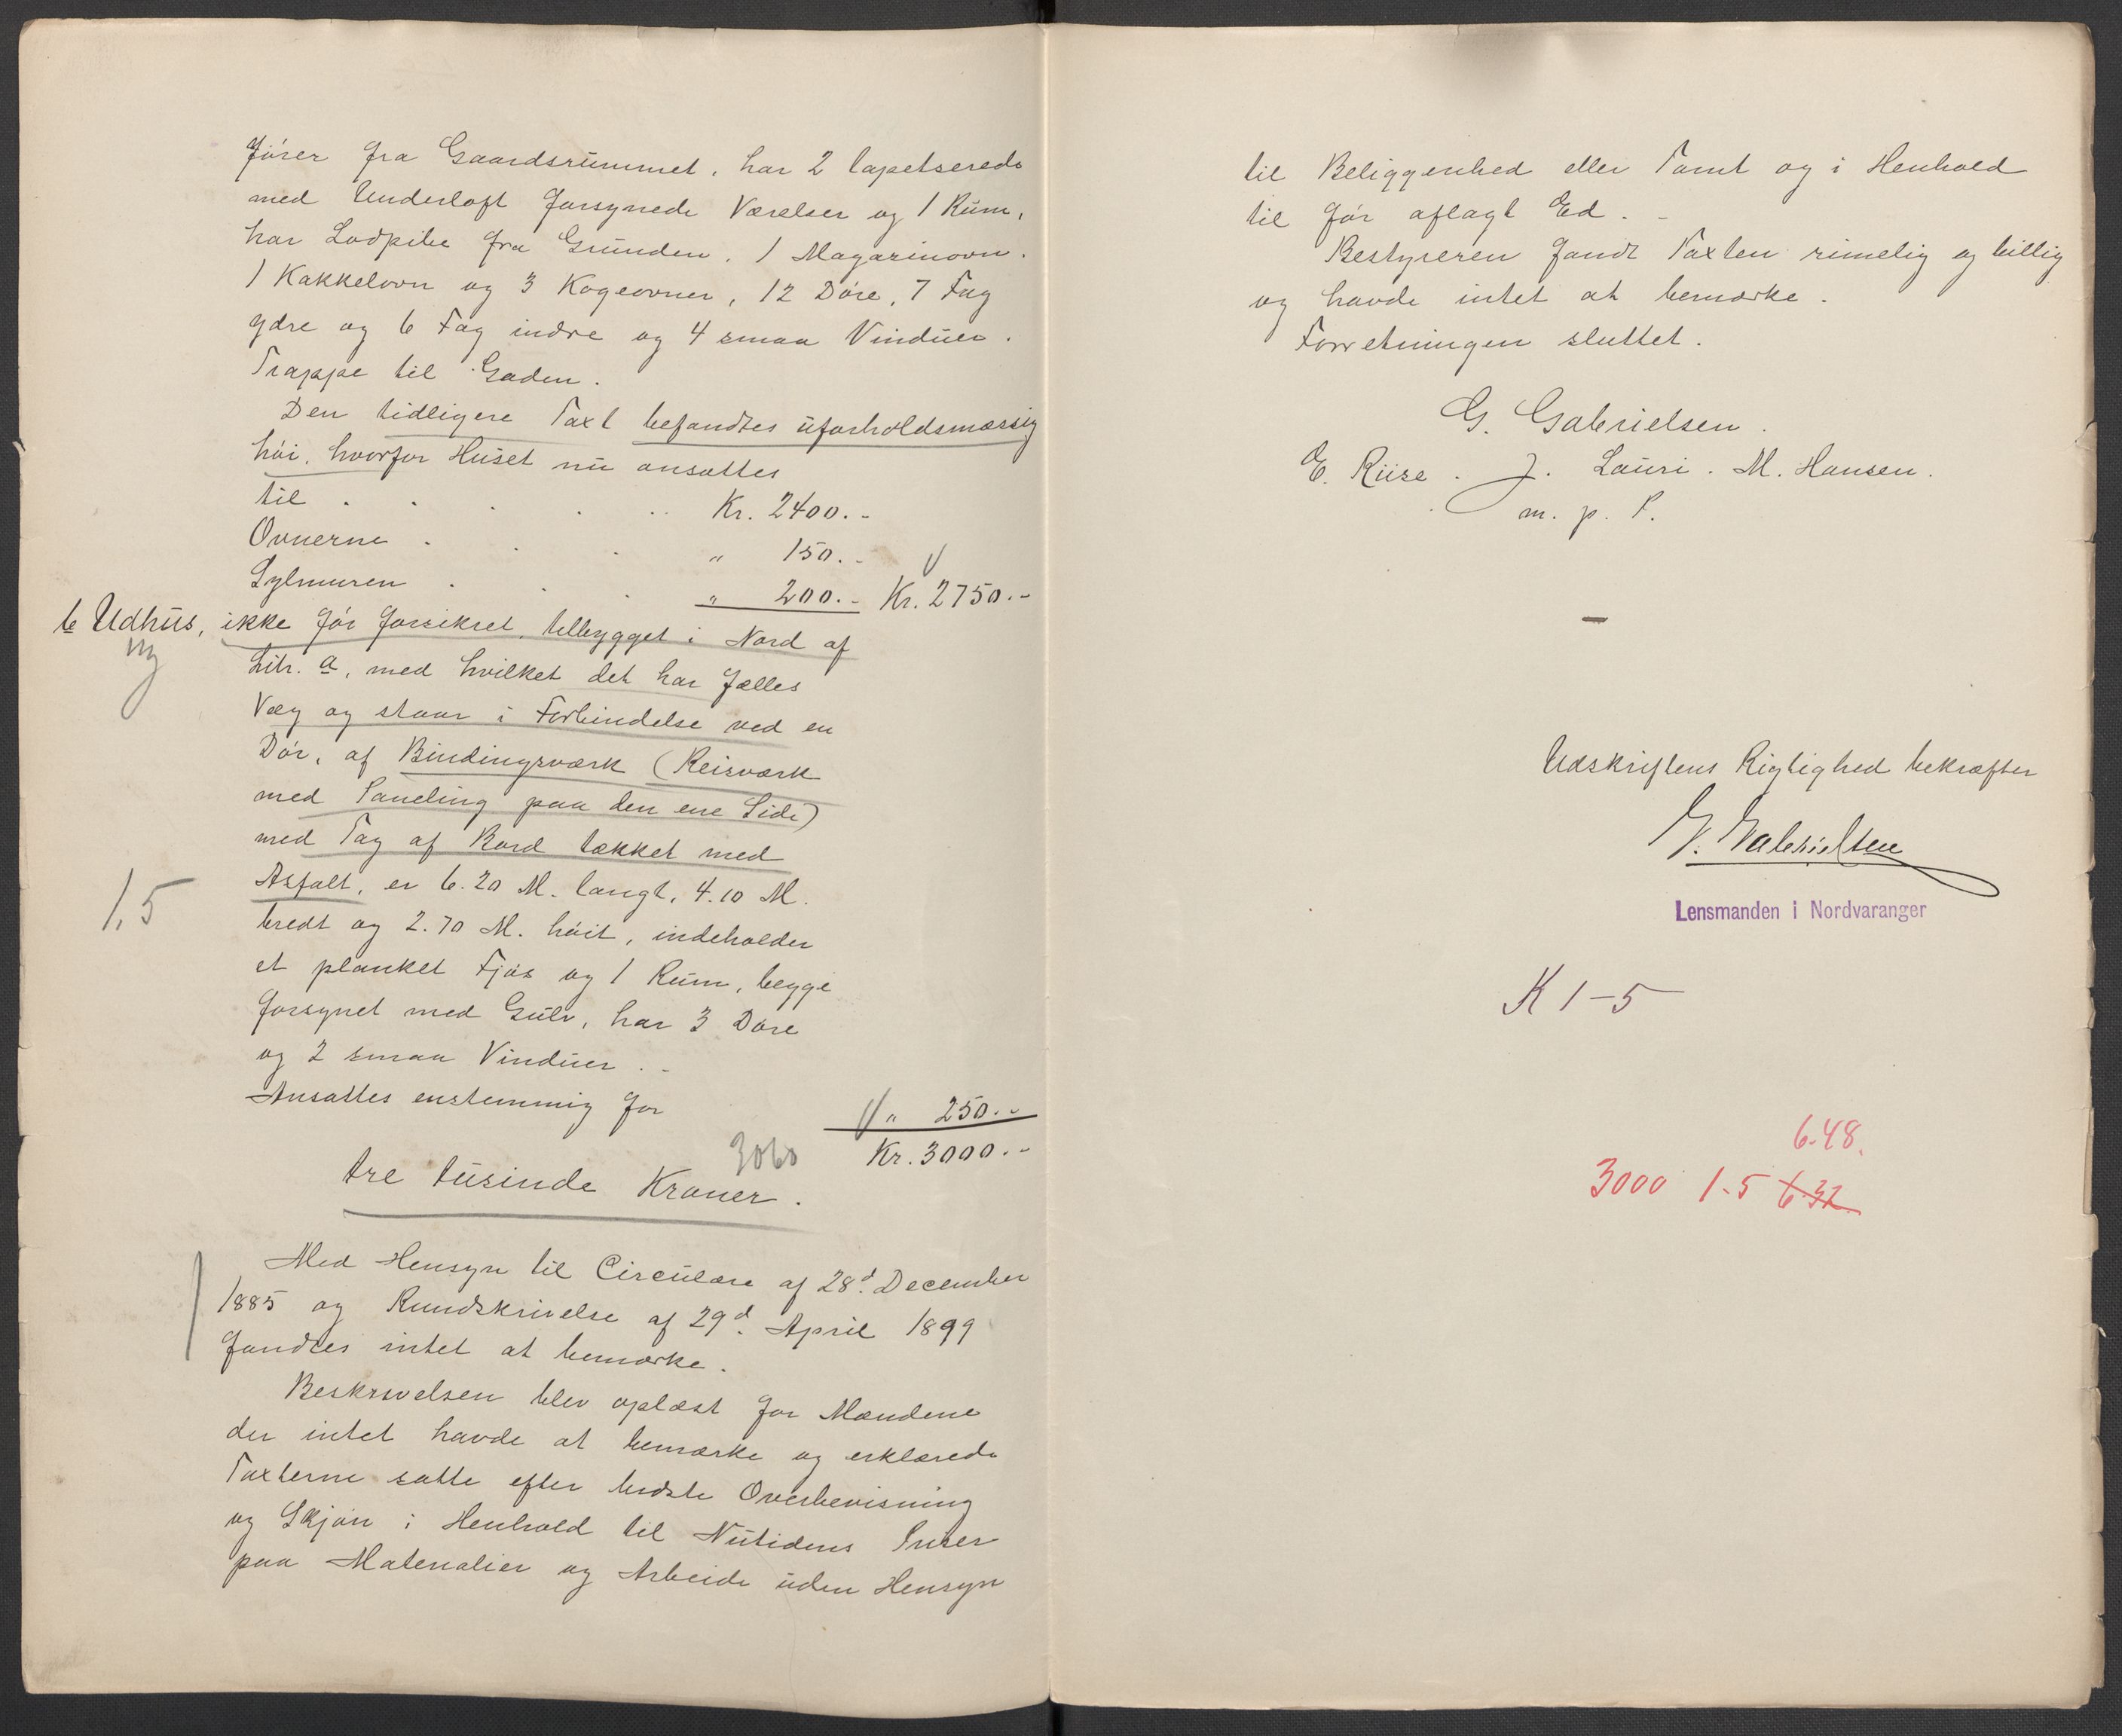 fører fra Gaardsrummet, har 2 tapetserede
med Underloft forsynede Værelser og 1 Rum,
har Lodpibe fra Grunden, 1 Magasinovn,
1 Kakkelovn og 3 Kogeovner, 12 Døre, 7 Fag
ydre og 6 Fag indre og 4 smaa Vinduer.
Trappe til Gaden.
Den tidligere Taxt befandtes uforholdsmæssig
høi, hvorfor Huset nu ansattes
til . . . . . Kr. 2400.-
Ovnerne . . . " 150.-
Sylmuren . . . " 200.- Kr. 2750.-
b Udhus, ikke før forsikret, tilbygget i Nord af
ny
Litr. a, med hvilket det har fælles
Væg og staar i Forbindelse ved en
Dør, af Bindingsværk (Reisværk
med Paneling paa den ene Side)
med Tag af Bord tækket med
1,5
Asfalt, er 6.20 M. langt, 4.10 M.
bredt og 2.70 M. høit, indeholder
et planket Fjøs og 1 Rum, begge
forsynet med Gulv, har 3 Døre
og 2 smaa Vinduer. -
Ansattes enstemmig for " 250.-
3060 Kr. 3000.-
tre tusinde Kroner.
Med Hensyn til Circulære af 28d. December
1885 og Rundskrivelse af 29d. April 1899
fandtes intet at bemærke.
Beskrivelsen blev oplæst for Mændene
der intet havde at bemærke og erklærede
Taxterne satte efter bedste Overbevisning
og Skjøn i Henhold til Nutidens Priser
paa Materialier og Arbeide uden Hensyn
til Beliggenhed eller Tomt og i Henhold
til før aflagt Ed. -
Bestyreren fandt Taxten rimelig og billig
og havde intet at bemærke.
Forretningen sluttet.
G. Gabrielsen.
E. Riise. J. Lauri. M. Hansen.
m. p. P.
Udskriftens Rigtighed bekræfter
G. Gabrielsen
Lensmanden i Nordvaranger
K 1-5
6.48.
3000 1.5 6.32